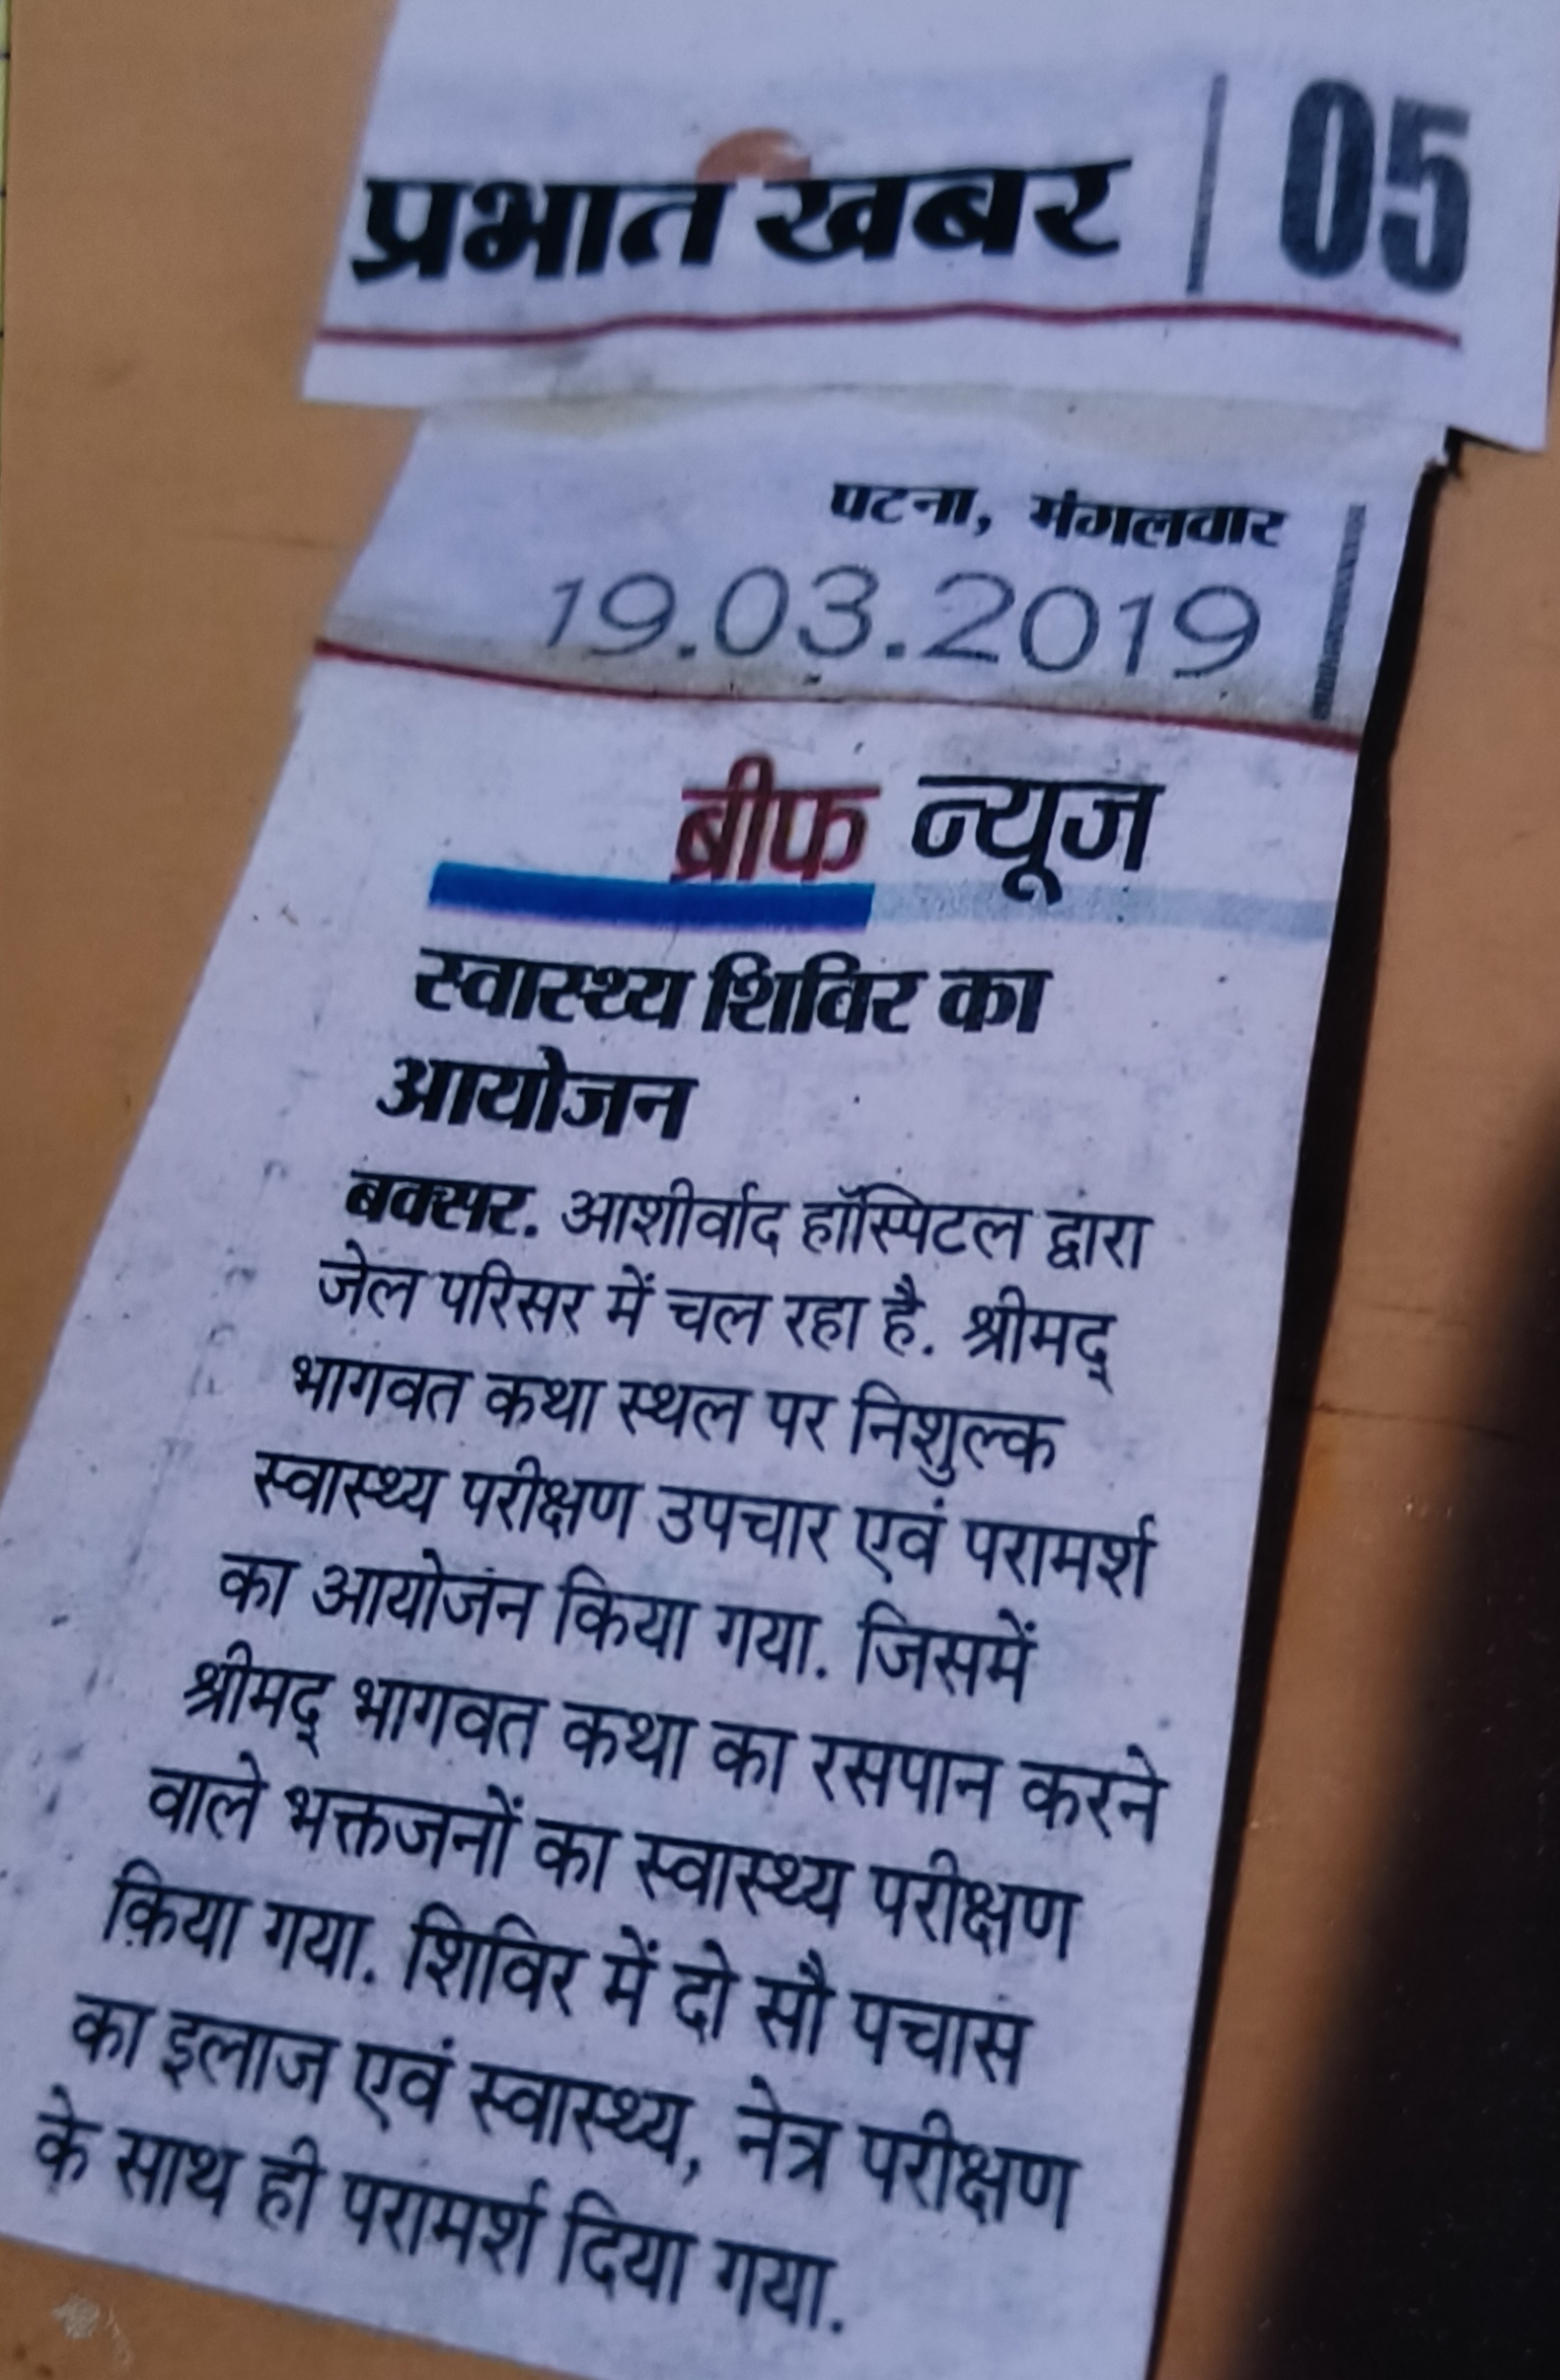 प्रभात खबर | 05
पटना, मंगलवार
19.03.2019
ब्रीफ न्यूज
स्वास्थ्य शिविर का
आयोजन
बक्सर. आशीर्वाद हॉस्पिटल द्वारा
जेल परिसर में चल रहा है. श्रीमद्
भागवत कथा स्थल पर निशुल्क
स्वास्थ्य परीक्षण उपचार एवं परामर्श
का आयोजन किया गया. जिसमें
श्रीमद् भागवत कथा का रसपान करने
वाले भक्तजनों का स्वास्थ्य परीक्षण
किया गया. शिविर में दो सौ पचास
का इलाज एवं स्वास्थ्य, नेत्र परीक्षण
के साथ ही परामर्श दिया गया.